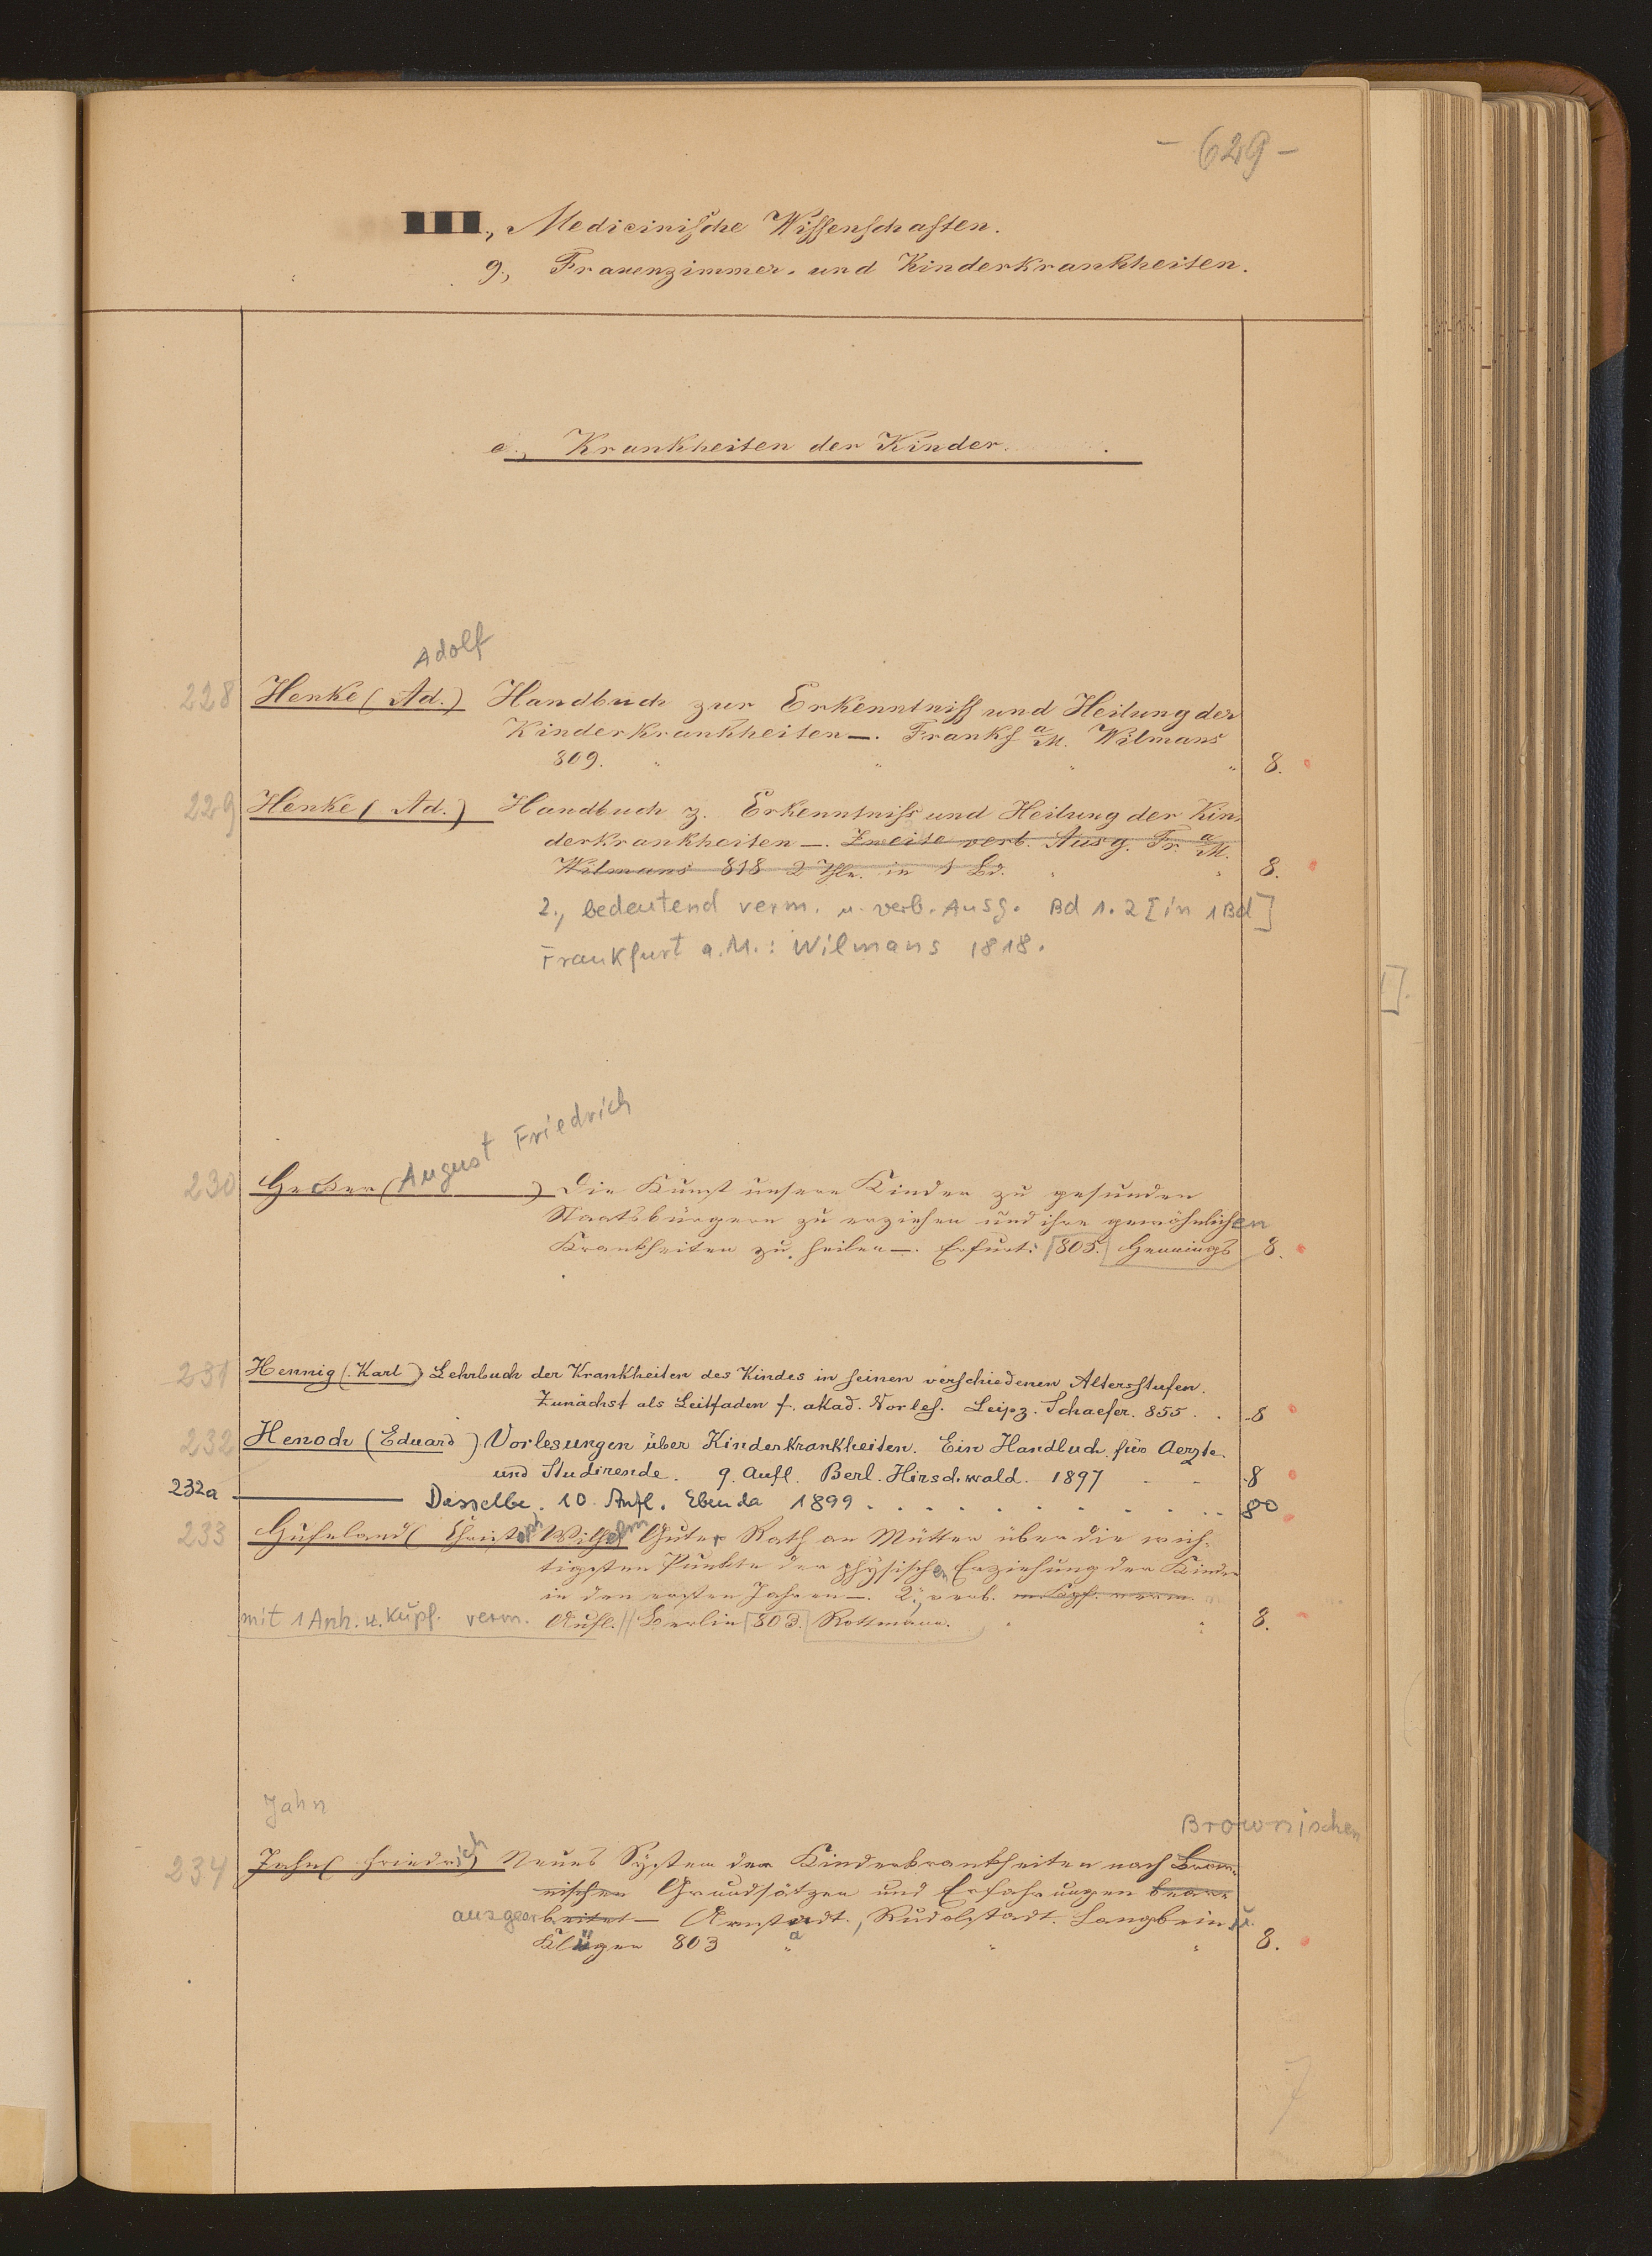 - 629 -
III., Medicinische Wissenschaften.
g, Frauenzimmer- und Kinderkrankheiten.
c., Krankheiten der Kinder.
Adolf
228 Henke (Ad.) Handbuch zur Erkenntniss und Heilung der
Kinderkrankheiten —. Frankf a/M. Wilmans
809. " " " " 8.
229 Henke (Ad.) Handbuch z. Erkenntniss und Heilung der Kin-
derkrankheiten —. Zweite verb. Ausg. Fr. a/M.
Wilmans 818 2 Thle. in 1 Bd. " " 8.
2., bedeutend verm. u. verb. Ausg. Bd 1.2 [in 1 Bd]
Frankfurt a.M.: Wilmans 1818.
[].
August Friedrich
230 Hecker ( ) Die Kunst unsere Kinder zu gesunden
Staatsbürgern zu erziehen und ihre gewöhnlichen
Krankheiten zu heilen —. Erfurt: 805. Hennings 8.
231 Hennig (Karl) Lehrbuch der Krankheiten des Kindes in seinen verschiedenen Altersstufen.
Zunächst als Leitfaden f. akad. Vorles. Leipz. Schaefer. 855 . . 8
232 Henoch (Eduard) Vorlesungen über Kinderkrankheiten. Ein Handbuch für Aerzte
und Studirende. 9. Aufl. Berl. Hirschwald. 1897 - - 8
232a ——— Dasselbe. 10. Aufl. Ebenda 1899 . . . . . . . . . . . 8°
233 Hufeland (Christoph Wilhelm Guter Rath an Mütter über die wich-
tigsten Punkte der physischen Erziehung der Kinder
in den ersten Jahren —. 2., verb. m. Kpf. verm.
mit 1 Anh. u. Kupf. verm. Aufl. // Berlin 803. Rottmann. " " 8.
Jahn
Brownischen
234 Jahn (Friedrich) Neues System der Kinderkrankheiten nach Brow-
nischen Grundsätzen und Erfahrungen bear-
ausgearbeitet — Arnstadt, Rudolstadt. Langbein u.
Klüger 803 " " " 8.